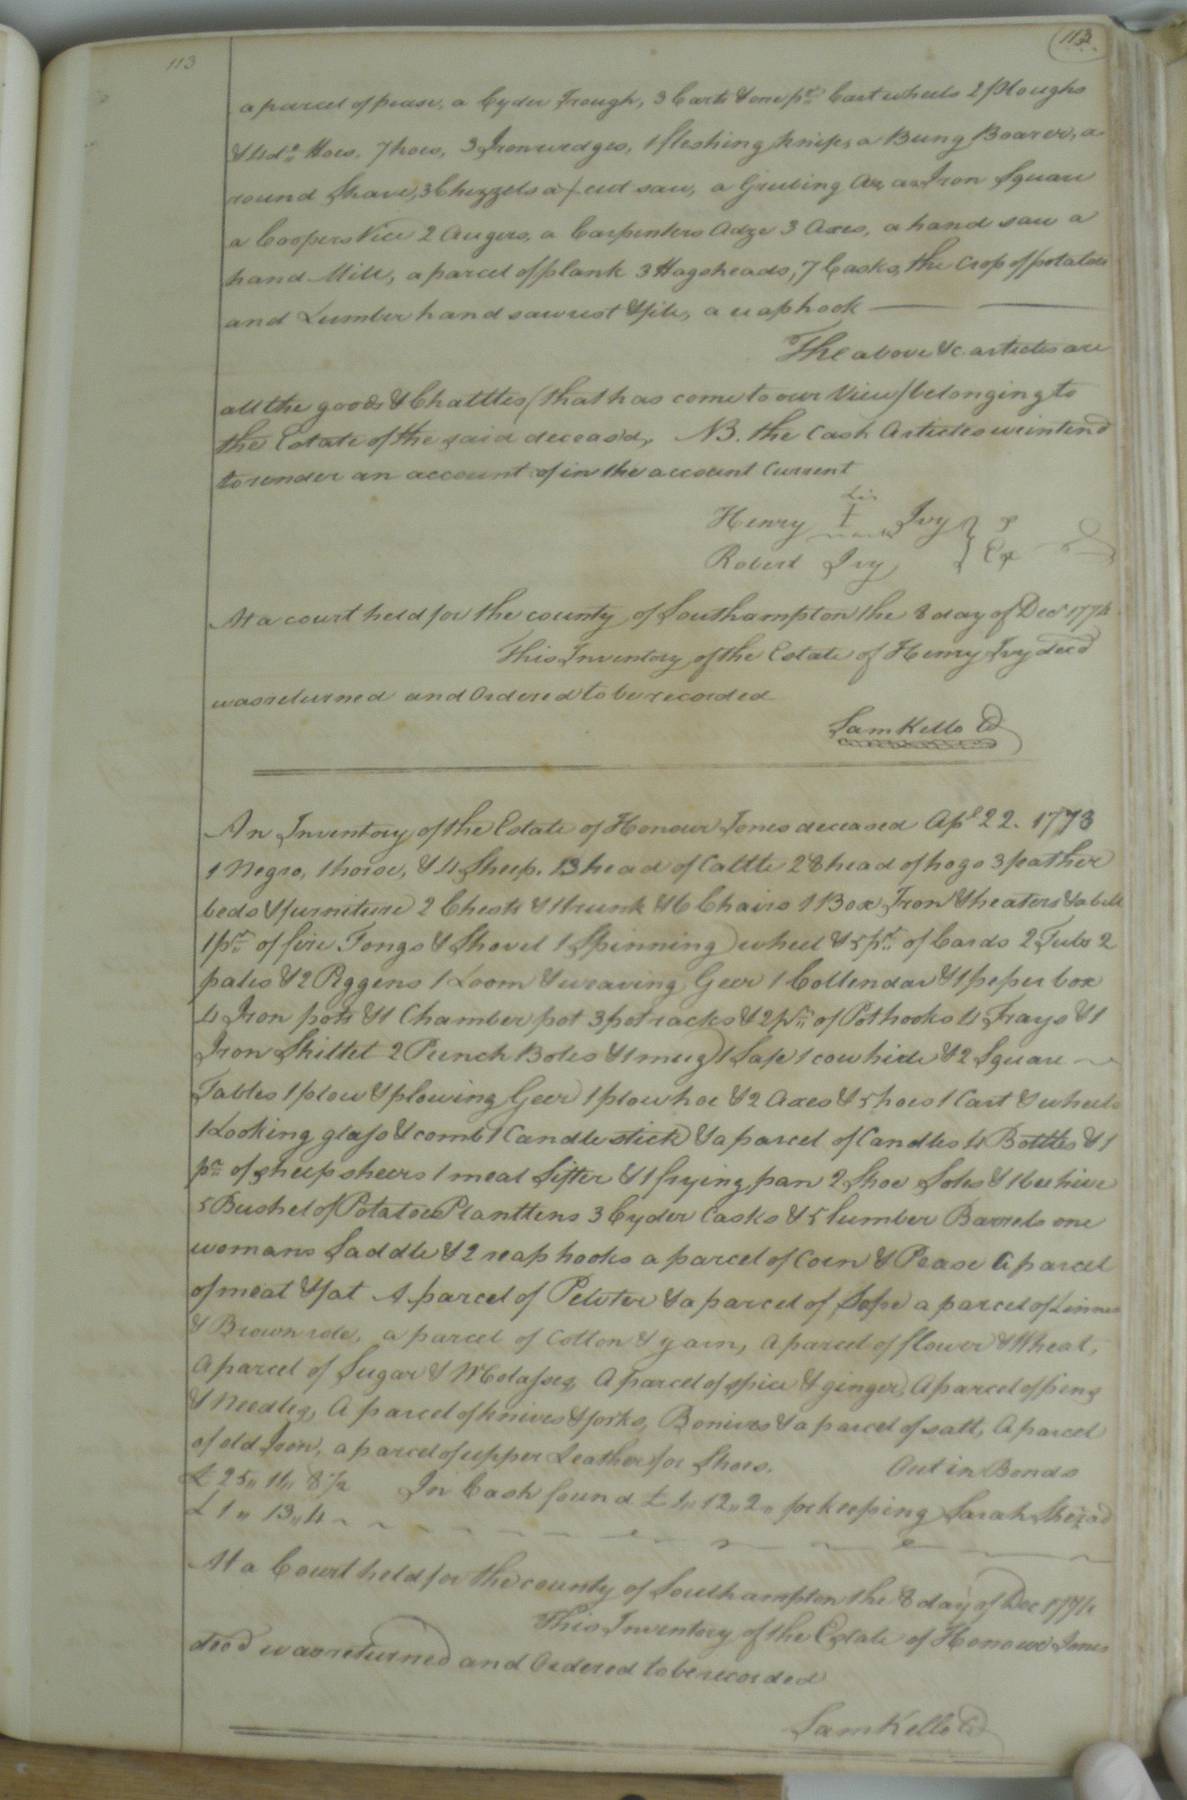 113
113
a parcel of pease, a Cyder Trough, 3 Carts & one pr Cart wheels 2 Ploughs
& 4 do Hoes, 7 hoes, 3 Iron wedges, 1 fleshing knife, a Bung Boarer, a
round Shave, 3 Chizzels a + cut saw, a Grubing Ax, an Iron Square
a Coopers Vice 2 Augers, a Carpenters Adze 3 Axes, a hand saw a
hand Mill, a parcel of plank 3 Hogsheads, 7 Casks, the Crop of potatoes
and Lumber hand saw rest & file, a reaphook
The above &c. articles are
all the goods & Chattles (that has come to our View) belonging to
the Estate of the said deceasd. NB. the Cash Articles we intend
to render an account of in the account Current
his
Henry I Ivy
mark
Robert Ivy } Ex
At a court held for the county of Southampton the 8 day of Decr 1774
This Inventory of the Estate of Henry Ivy decd
was returned and Ordered to be recorded
Sam Kello
An Inventory of the Estate of Honour Jones deceased Apl 22. 1773
1 Negro, 1 horse, & 4 Sheep. 13 head of Cattle 28 head of hogs 3 feather
beds & furniture 2 Chests & 1 trunk & 6 Chairs 1 Box Iron & heaters & a bell
1 pr of fire Tongs & Shovel 1 Spinning wheel & 5 pr of Cards 2 Tubs 2
pales & 2 Piggens 1 Loom & weaving Geer 1 Collendar & 1 peper box
4 Iron pots & 1 Chamber pot 3 pot racks & 2 pr of Pothooks 4 Trays & 1
Iron Skillet 2 Punch Boles & 1 mug 1 Safe 1 cow hide & 2 Square
Tables 1 plow & plowing Geer 1 plow hoe & 2 Axes & 5 hoes 1 Cart & wheels
1 Looking glass & comb 1 Candlestick & a parcel of Candles 4 Bottles & 1
pr of sheep sheers 1 meal Sifter & 1 frying pan 2 Shoe Soles & 1 bee hive
5 Bushel of Potatoe Planttens 3 Cyder Casks & 5 lumber Barrels one
womans Saddle & 2 reap hooks a parcel of Corn & Pease A parcel
of meat & fat A parcel of Pewter & a parcel of Sope a parcel of Linnen
& Brown role, a parcel of Cotton & yarn, A parcel of flower & Wheat,
A parcel of Sugar & Molasses, A parcel of spice & ginger, A parcel of pens
& Needles, A parcel of knives & forks, & a parcel of salt, A parcel
of old Iron, a parcel of upper Leather for Shoes. Out in Bonds
£ 25,, 11,, 8 1/2 In Cash found £ 4,, 12,, 2,, for keeping Sarah
£ 1,, 13,, 4
At a Court held for the county of Southampton the 8 day of Dec 1774
This Inventory of the Estate of Honour Jones
decd was returned and Ordered to be recorded
Sam Kello